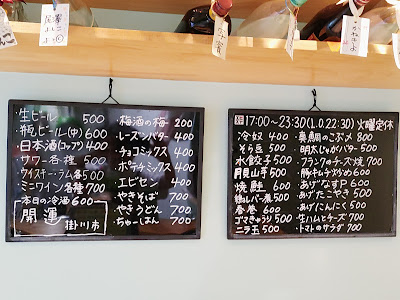 生ビール 500
瓶ビール(中) 600
日本酒(コップ) 400
サワー各種 500
ウイスキー・ラム各 500
ミニワイン各種 700
本日の冷酒 600
開運
掛川市
梅酒の梅 200
レーズンバター 400
チョコミックス 400
ポテチミックス 400
エビセン 400
やきそば 700
やきうどん 700
ちゃーはん 700
17:00~23:30(L.O.22:30)火曜定休
冷奴 400
そら豆 500
水餃子 500
月見山芋 500
焼鮭 600
鶏レバー煮 500
春巻 600
ゴマきゅうり 500
ニラ玉 500
真鯛のこぶ〆 800
明太じゃがバター 500
フランクのチーズ焼 700
豚キムチ炒め 600
あげなすP 600
あげたこやき 500
あげにんにく 500
生ハムとチーズ 700
トマトのサラダ 700